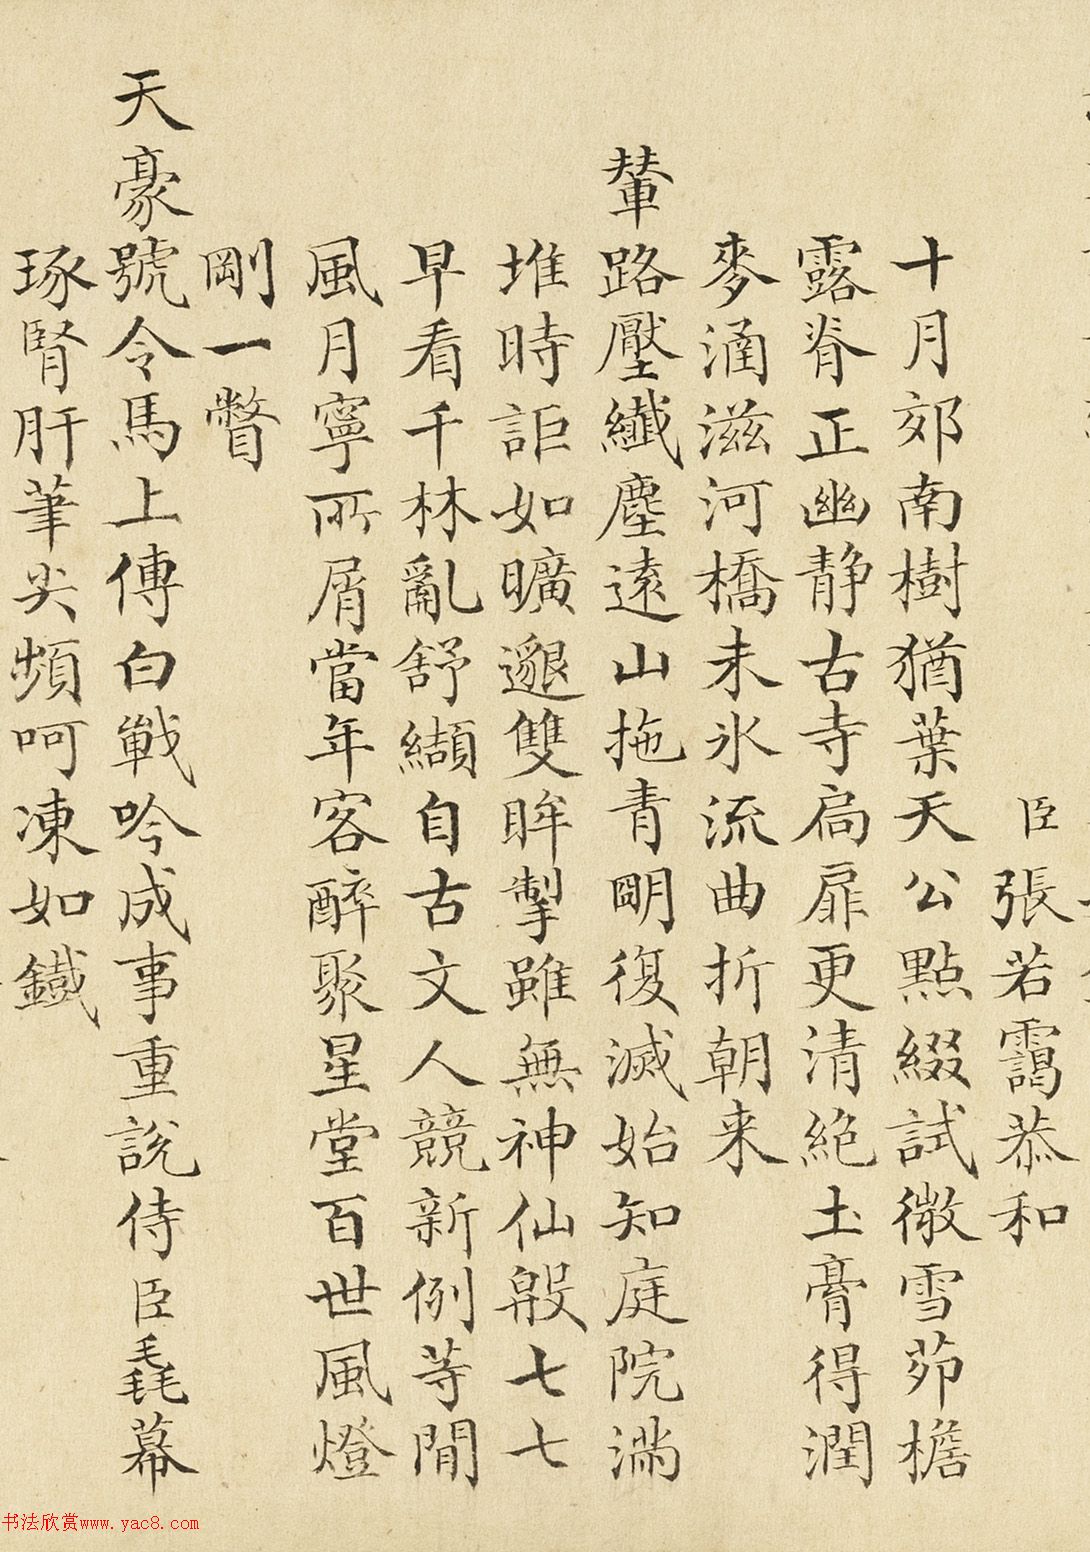 臣張若靄恭和
十月郊南樹猶葉天公點綴試微雪茆檐
露脊正幽静古寺扃扉更清絕土膏得潤
麥涵滋河橋未氷流曲折朝来
輦路壓纖塵遠山拖青明復滅始知庭院滿
堆時詎如曠邈雙眸掣雖無神仙殷七七
早看千林亂舒纈自古文人競新例等閒
風月寧所屑當年客醉聚星堂百世風燈
剛一瞥
天豪號令馬上傳白戰吟成事重說侍臣毳幕
琢腎肝筆尖頻呵凍如鐵
书法欣赏www.yac8.com